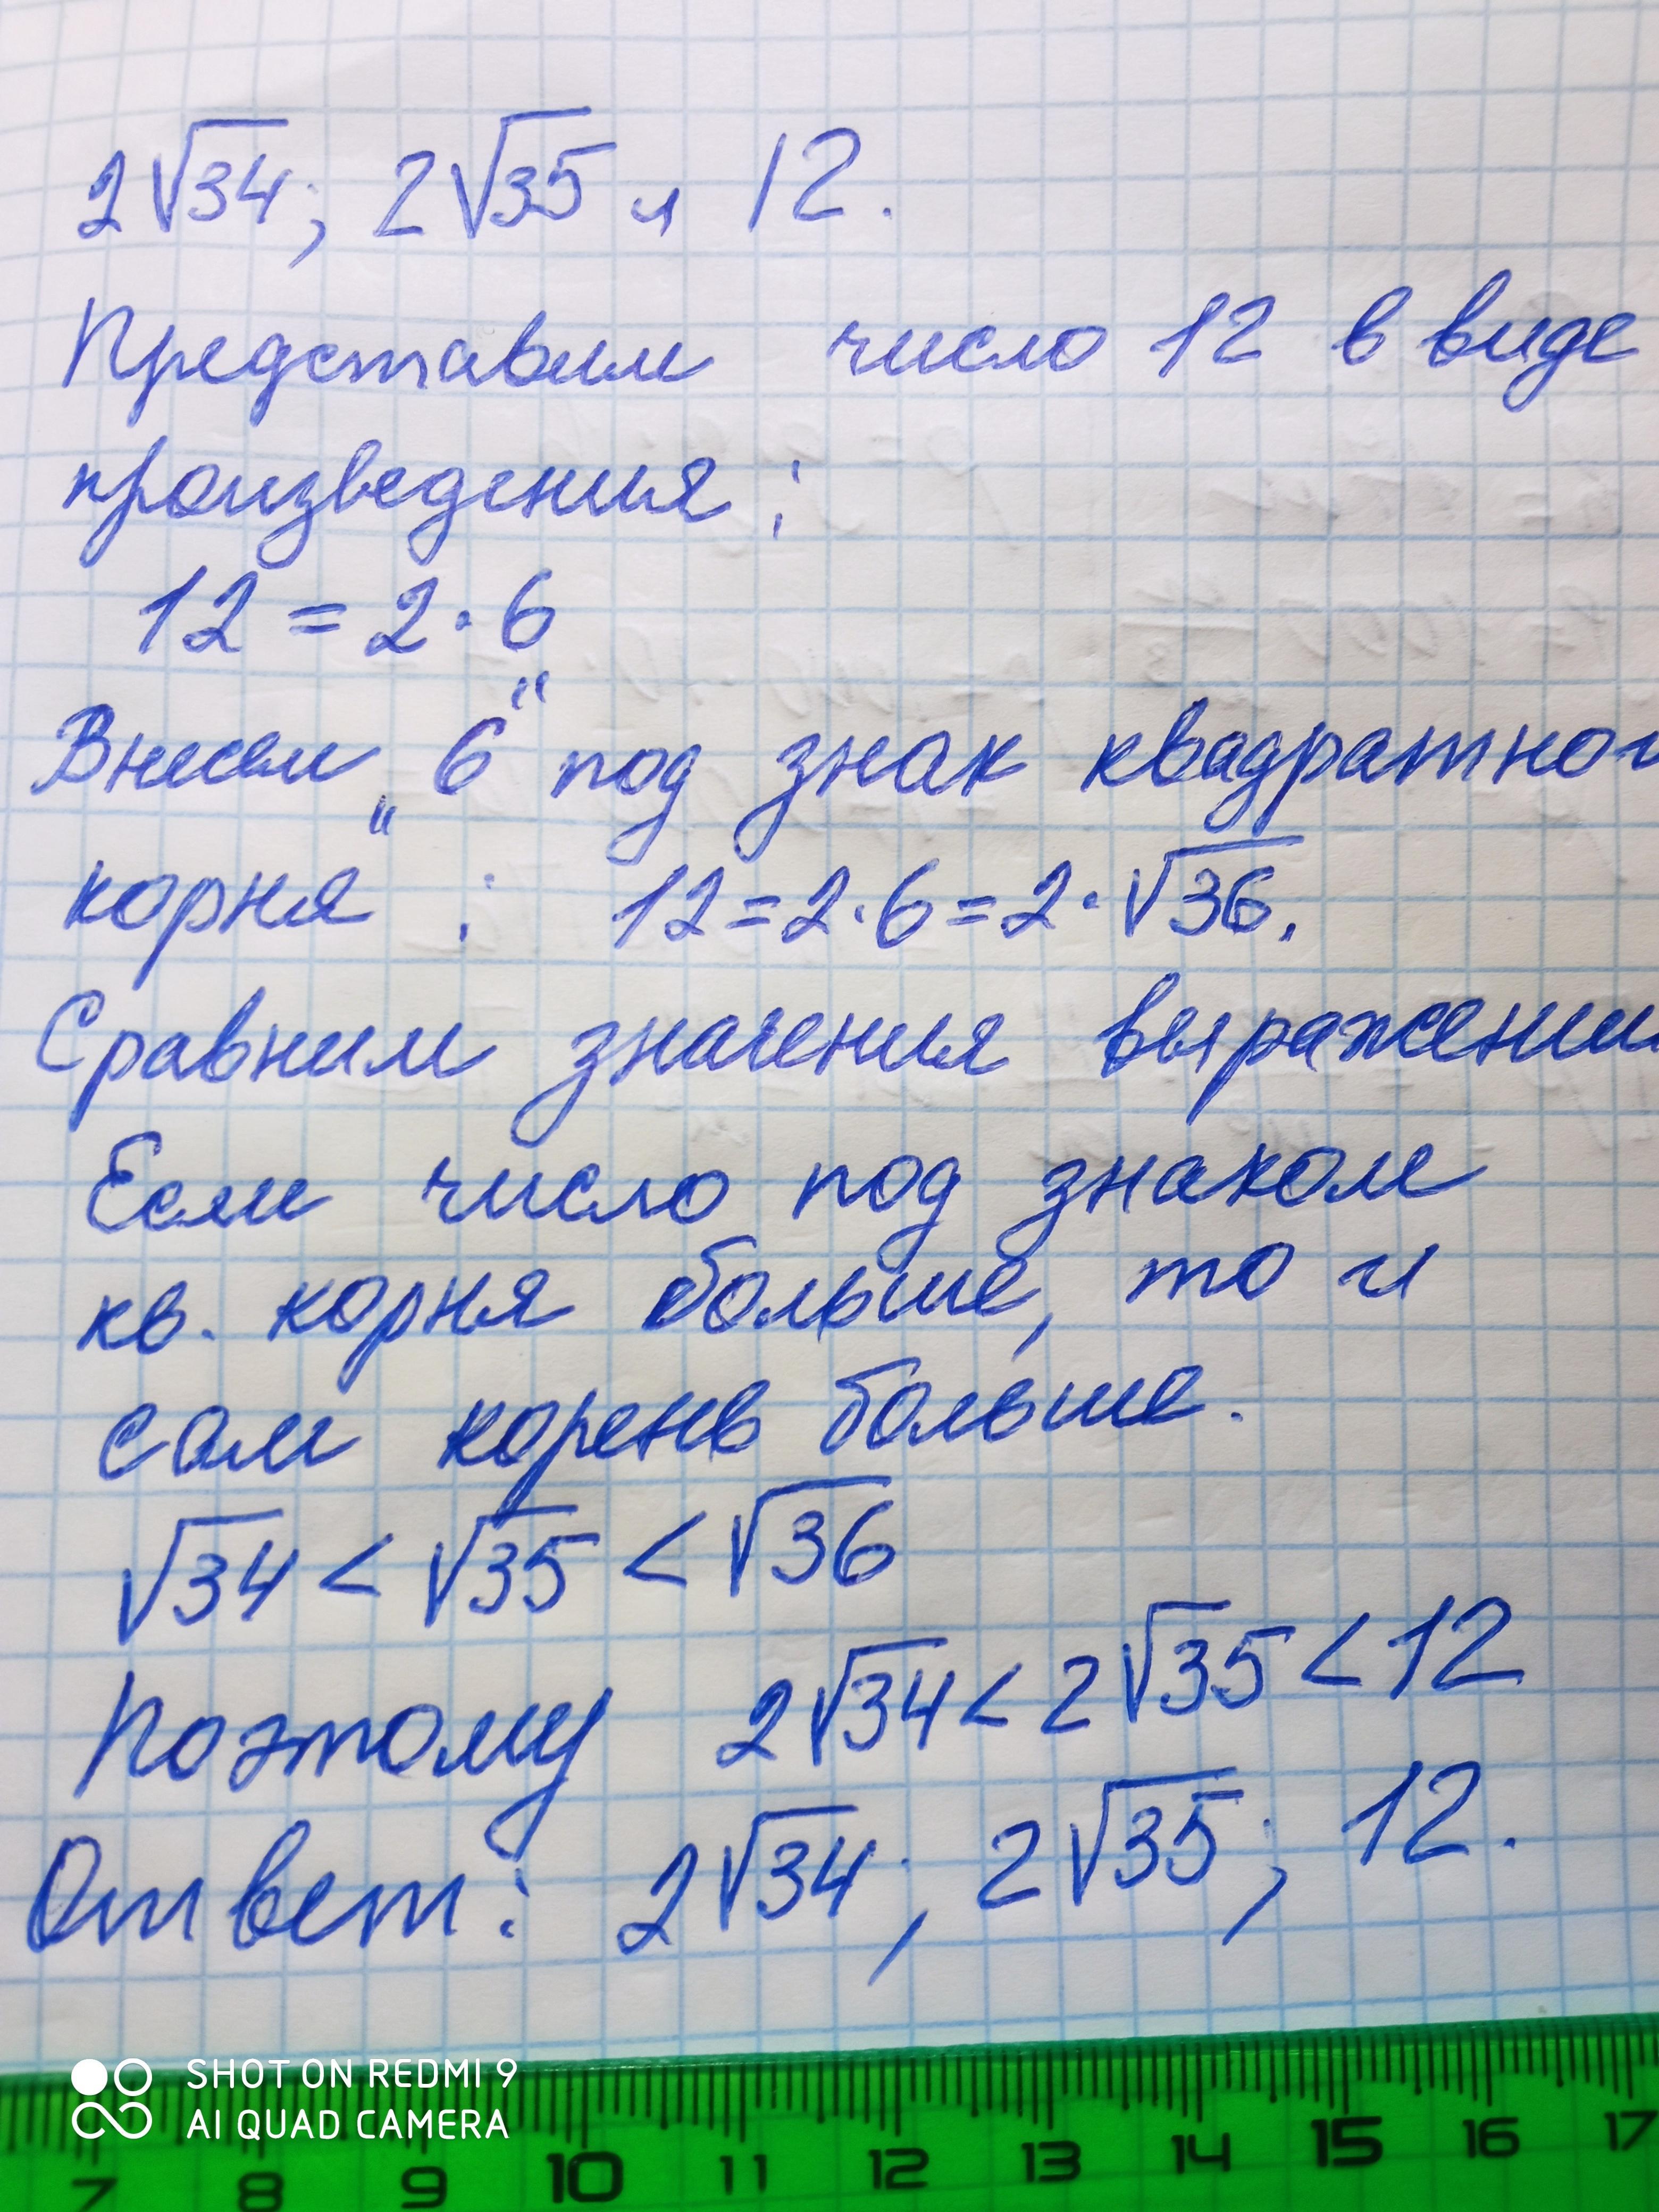 2√34; 2√35 и 12.
Представим число 12 в виде
произведения:
12 = 2·6
Внесем "6" под знак квадратног
корня: 12=2·6=2·√36.
Сравним значения выражени
Если число под знаком
кв. корня больше, то и
сам корень больше.
√34 < √35 < √36
Поэтому 2√34 < 2√35 < 12
Ответ: 2√34; 2√35; 12.
SHOT ON REDMI 9
AI QUAD CAMERA
7 8 9 10 11 12 13 14 15 16 17